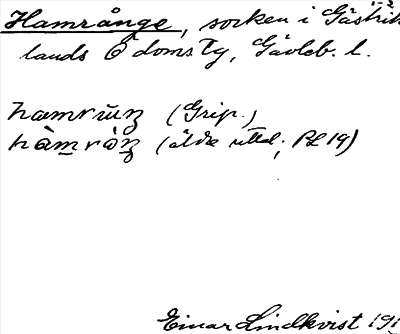 Hamrånge, socken i Gästrik
lands Ö domsty, Gävleb. l.
hamrūŋ (Grip.)
hàmròŋ (äldre uttal; RL 19)
Einar Lindkvist 191